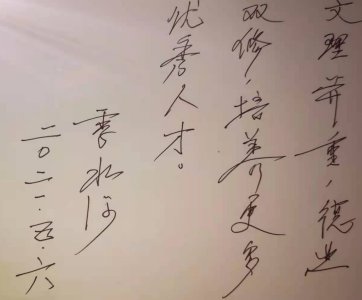 文理并重,德业
双修,培养更多
优秀人才。
李水河
二〇二一·五·六